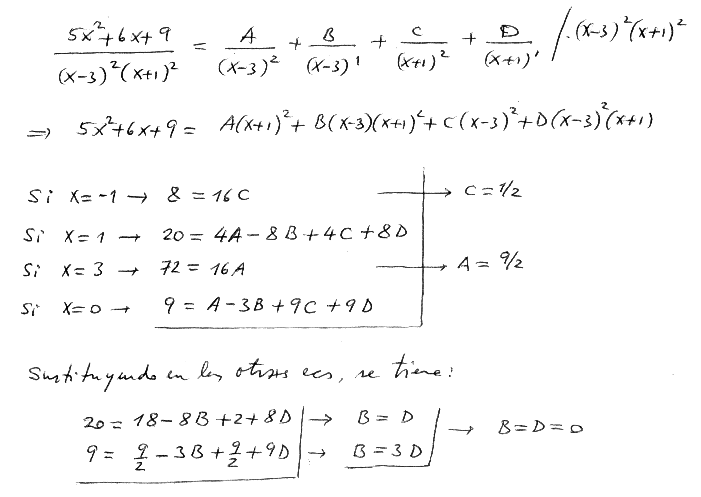 (5x²+6x+9)/((x-3)²(x+1)²) = A/(x-3)² + B/(x-3)¹ + C/(x+1)² + D/(x+1)¹ /·(x-3)²(x+1)²
⇒ 5x²+6x+9 = A(x+1)² + B(x-3)(x+1)² + C(x-3)² + D(x-3)²(x+1)
Si x=-1 → 8 = 16C → C = 1/2
Si x=1 → 20 = 4A-8B+4C+8D
Si x=3 → 72 = 16A → A = 9/2
Si x=0 → 9 = A-3B+9C+9D
Sustituyendo en las otras ecs, se tiene:
20 = 18-8B+2+8D → B = D
9 = 9/2 -3B + 9/2 +9D → B = 3D → B=D=0